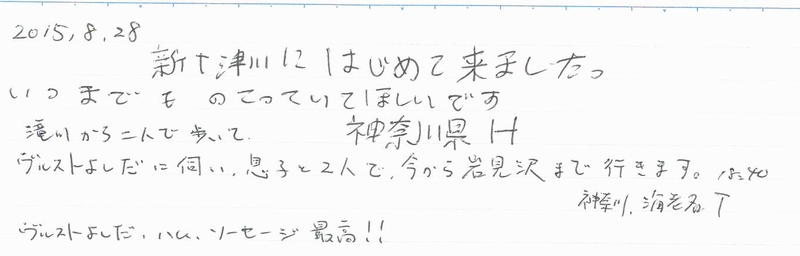 2015,8,28
新十津川にはじめて来ましたっ
いつまでものこっていてほしいです
滝川から二人で歩いて.　神奈川県 H
ヴルストよしだに伺い、息子と2人で、今から岩見沢まで行きます。18:40
神奈川、海老名 T
ヴルストよしだ、ハム、ソーセージ最高!!